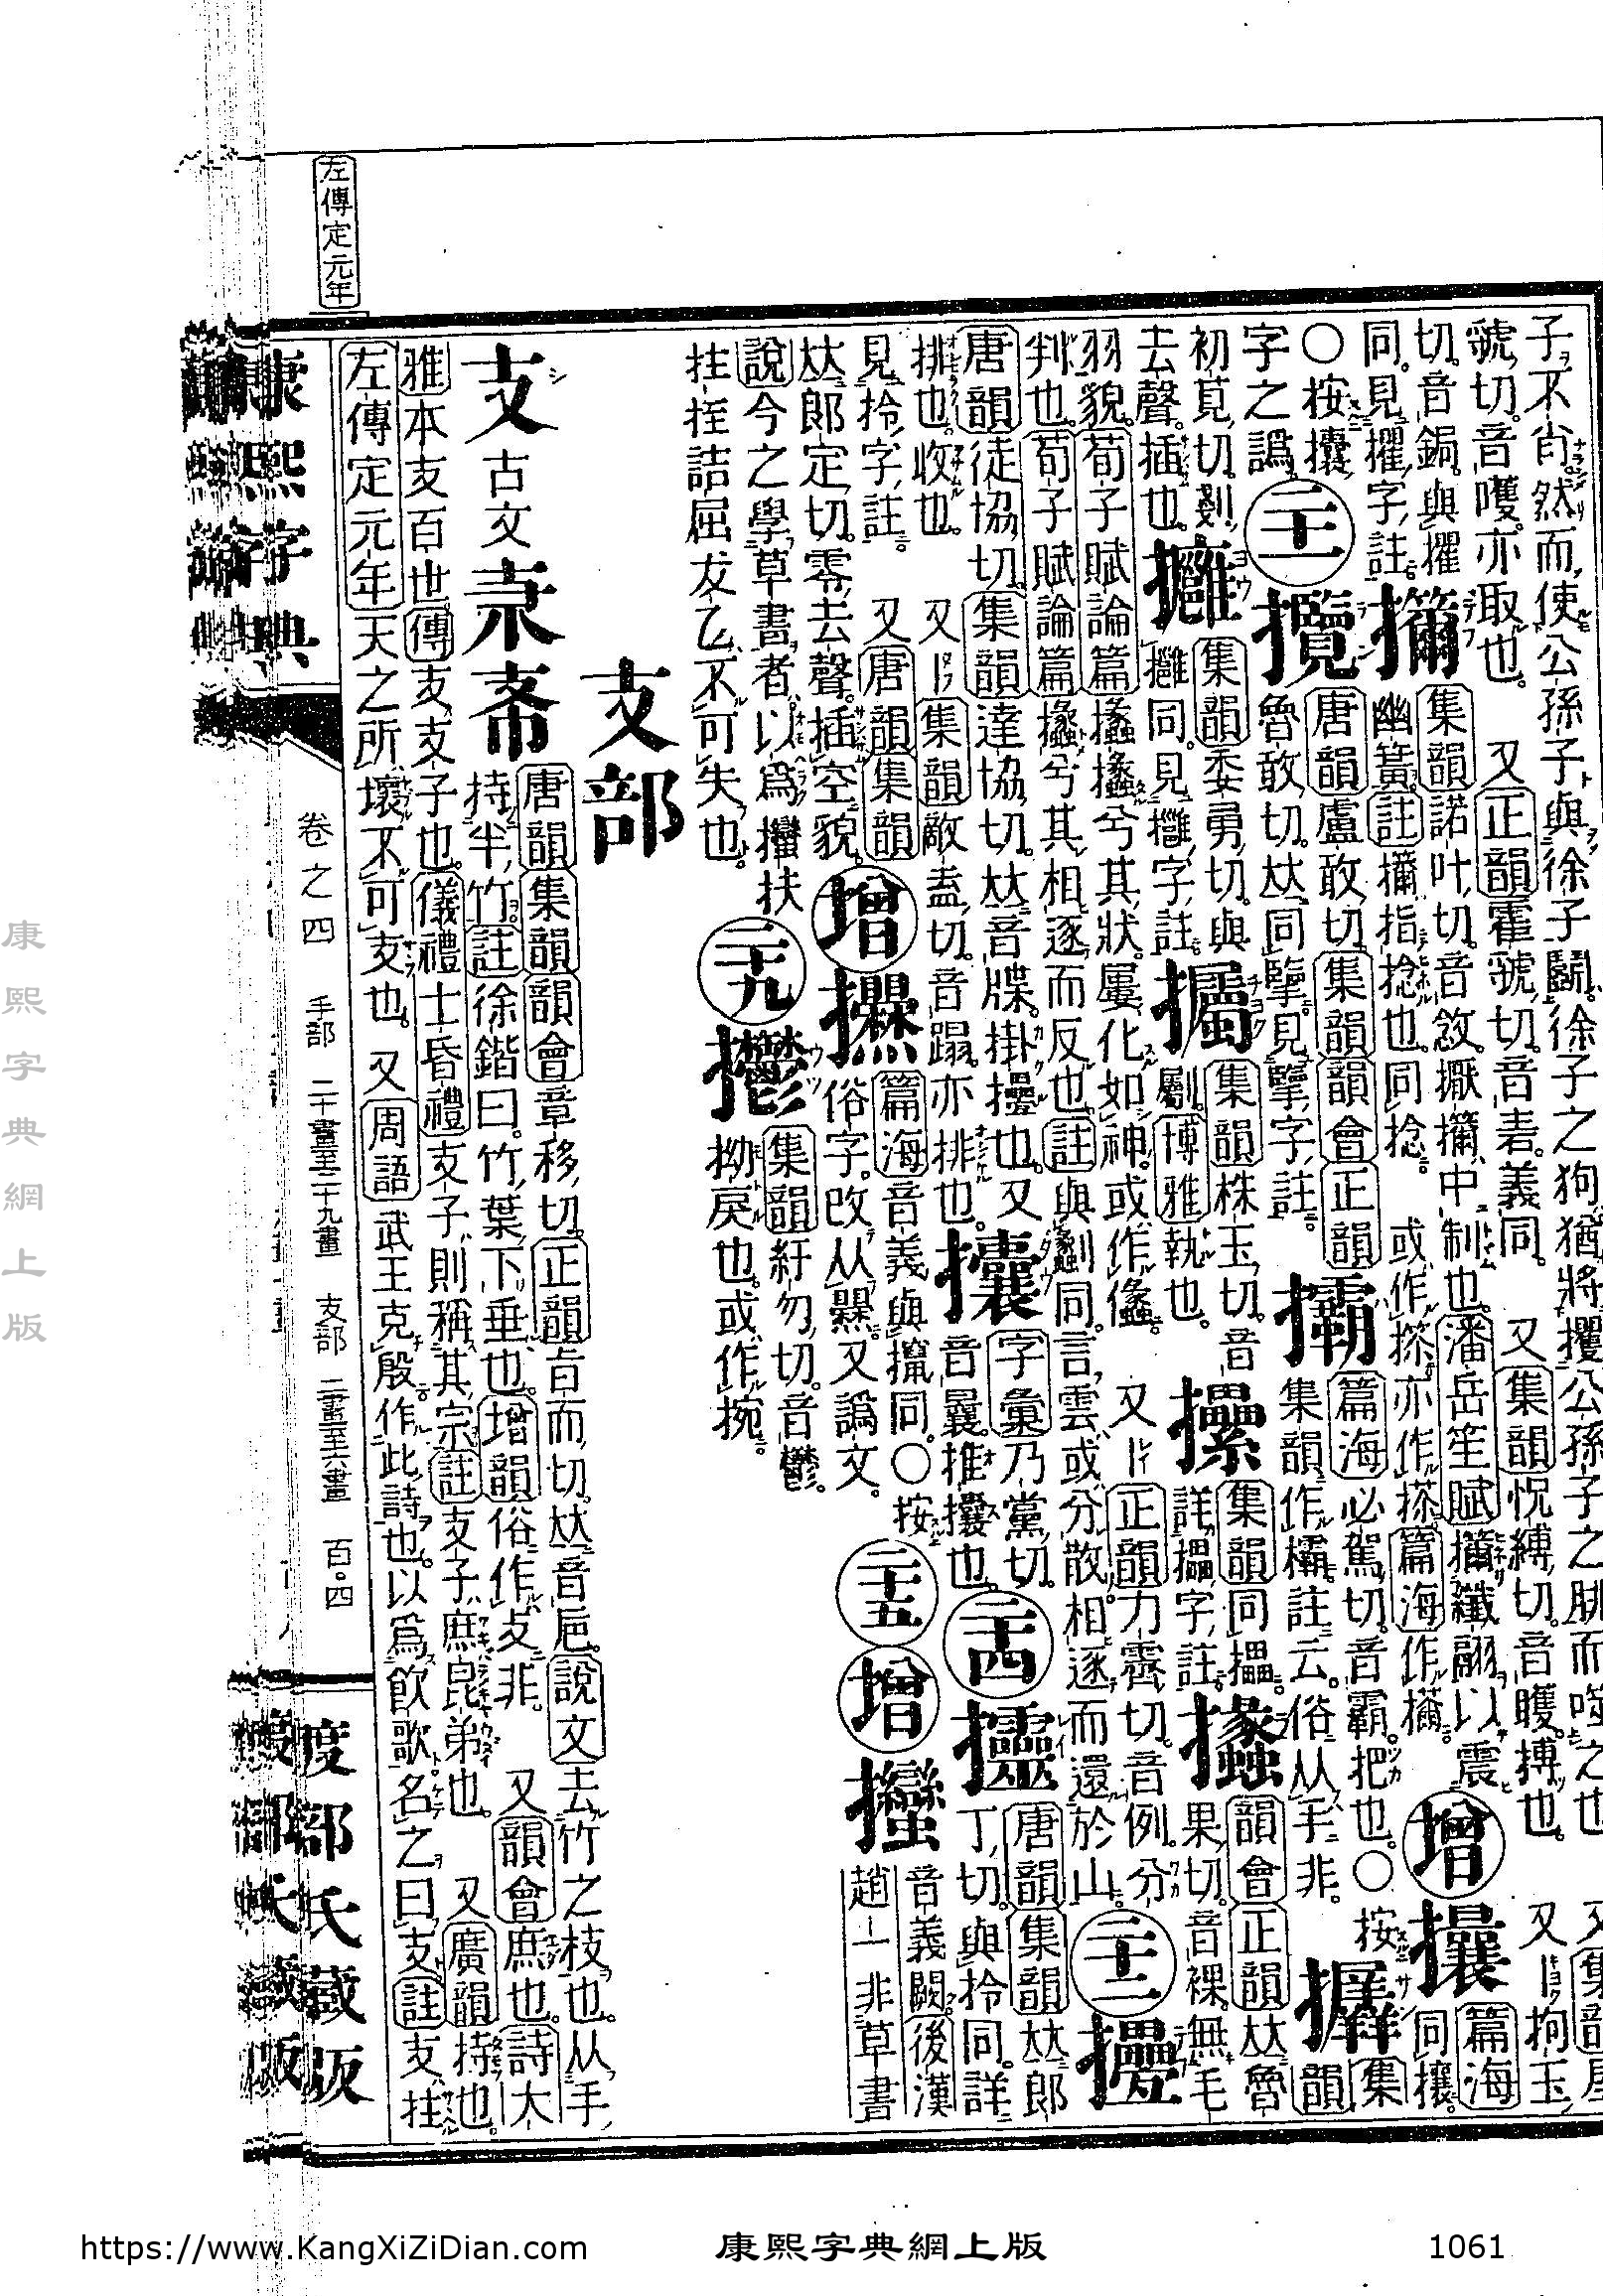 子不肖然而使公孫子與徐子鬬徐子之狗猶將攫公孫子之腓而噬之也 又集韻屋
虢切音嚄亦取也 又正韻霍虢切音砉義同 又集韻怳縛切音矆搏也 又｜拘玉
切音鋦與擢
同見擢字註
攡集韻諾叶切音敜擫攡中制也潘岳笙賦攡纖翮以震
幽簧註攡指捻也同捻 或作搽亦作搽篇海作
增攘篇海
同攘
○按攮
字之譌
二十一
攬唐韻盧敢切集韻韻會正韻
魯敢切𠀤同擥見擥字註
㩴篇海必駕切音霸把也○按
集韻作欛註云俗从手非
集韻
初莧切剗
去聲插也
㩲集韻委勇切與
攤同見㩲字註
㩳集韻株玉切音
斸博雅執也
攥集韻同㩴
詳㩴字註
攭韻會正韻𠀤魯
果切音裸無毛
羽貌荀子賦論篇攭攭兮其狀屢化如神或作儽 又｜正韻力霽切音例分
判也荀子賦論篇攭兮其相逐而反也註與劙同言雲或分散相逐而還於山
二十二
疊
唐韻徒協切集韻達協切𠀤音牒掛㩹也又
排也收也 又｜集韻敵盍切音蹋亦排也
攮字彙乃黨切
音曩推攮也
二十四
㩕唐韻丁切集韻𠀤郎
丁切與拎同詳
見拎字註 又唐韻集韻
𠀤郎定切零去聲插空貌
增
篇海音義與攛同○按
俗字攺从爨又譌文
二十五
增
音義闕後漢
趙｜一非草書
說今之學草書者以爲扶
拄挃詰屈犮乙不可失也
二十九
集韻紆勿切音鬱
拗戾也或作捥
支部
支古文𠦙𣏟
唐韻集韻韻會章移切正韻旨而切𠀤音巵說文去竹之枝也从手
持半竹註徐鍇曰竹葉下垂也增韻俗作攴非 又韻會庶也詩大
雅本支百世傳支支子也儀禮士昏禮支子則稱其宗註支子庶昆弟也 又廣韻持也
左傳定元年天之所壞不可支也 又周語武王克殷作此詩也以爲飫歌名之曰支註支拄
左傳定元年
康熙字典
卷之四 手部 二十畫至二十九畫 支部 二畫至六畫 百。四
度部氏藏版
康熙字典網上版
https://www.KangXiZiDian.com
康熙字典網上版
1061